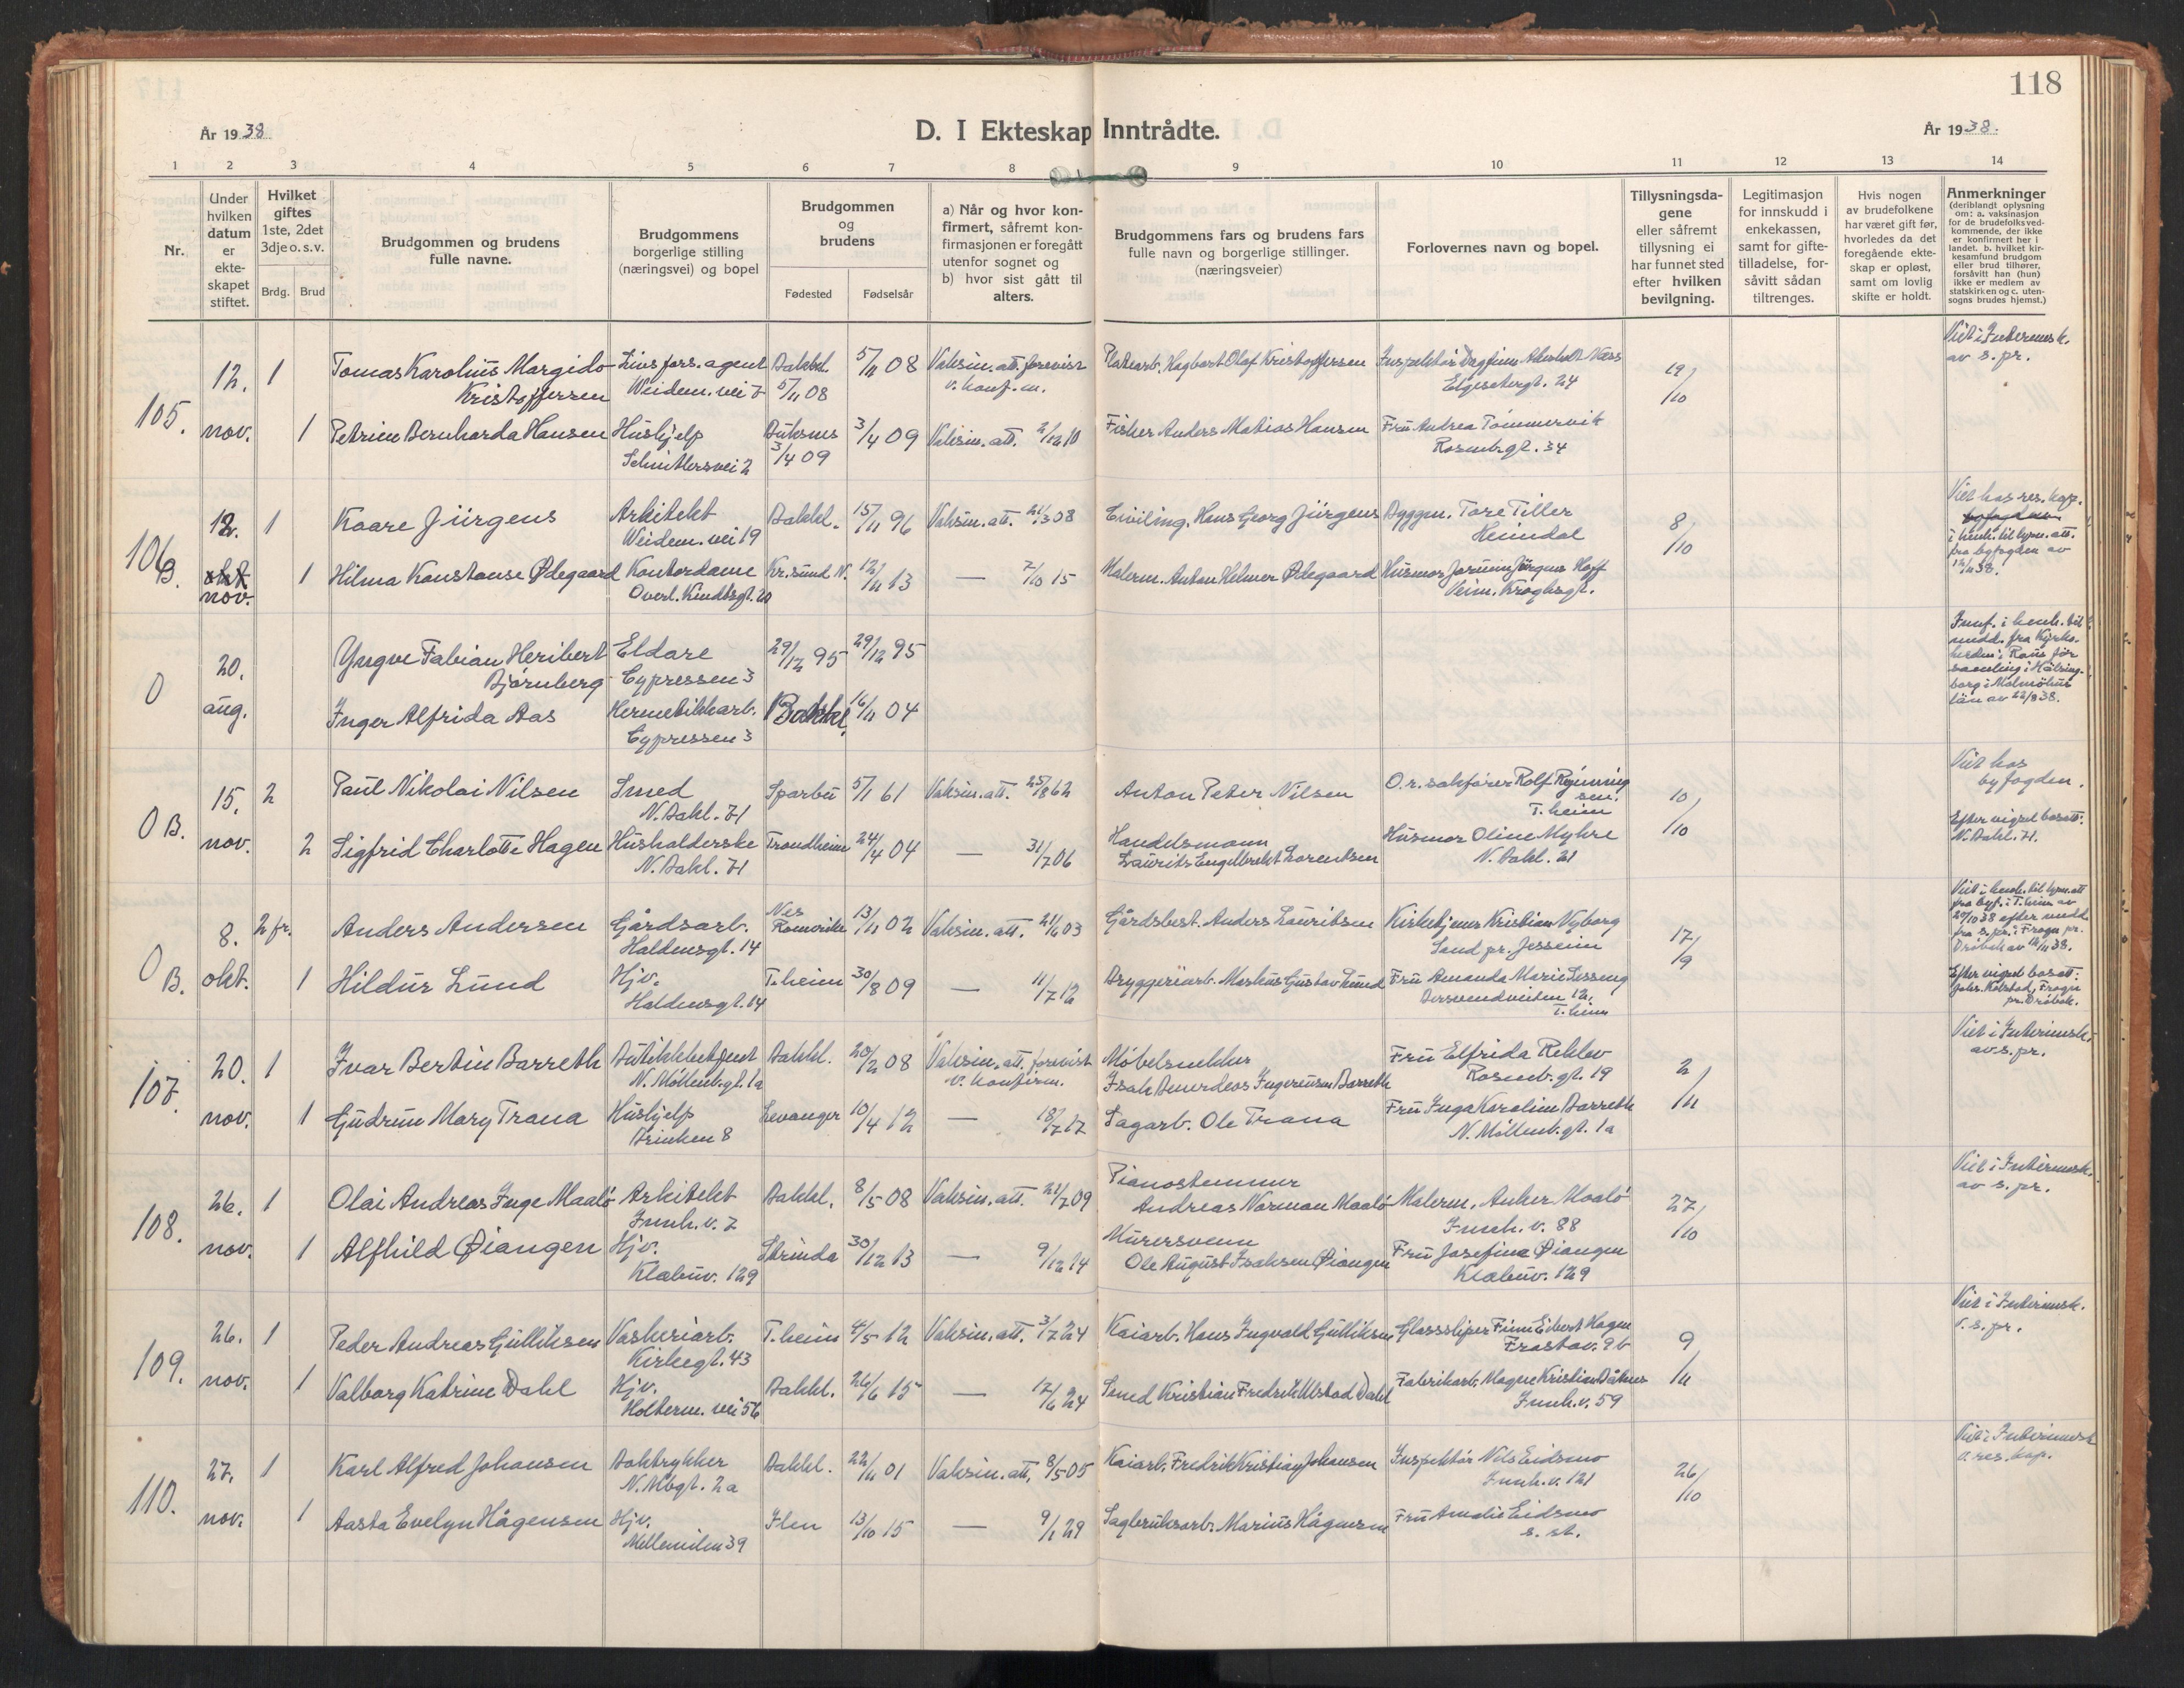 118
År 1938.
D. I Ekteskap Inntrådte.
År 1938.
1 2 3 4 5 6 7 8 9 10 11 12 13 14
Nr.
Under hvilken datum er ekteskapet stiftet.
Hvilket giftes 1ste, 2det 3dje o. s. v.
Brdg. Brud
Brudgommen og brudens fulle navne.
Brudgommens borgerlige stilling (næringsvei) og bopel
Brudgommen og brudens
Fødested Fødselsår
a) Når og hvor konfirmert, såfremt konfirmasjonen er foregått utenfor sognet og
b) hvor sist gått til alters.
Brudgommens fars og brudens fars fulle navn og borgerlige stillinger. (næringsveier)
Forlovernes navn og bopel.
Tillysningsdagene eller såfremt tillysning ei har funnet sted efter hvilken bevilgning.
Legitimasjon for innskudd i enkekassen, samt for giftetilladelse, forsåvitt sådan tiltrenges.
Hvis nogen av brudefolkene har været gift før, hvorledes da det foregående ekteskap er opløst, samt om lovlig skifte er holdt.
Anmerkninger (deriblandt oplysning om: a. vaksinasjon for de brudefolks vedkommende, der ikke er konfirmert her i landet. b. hvilket kirkesamfund brudgom eller brud tilhører, forsåvitt han (hun) ikke er medlem av statskirken og c. utensogns brudes hjemst.)
105. 12. nov.
1 Tomas Karolius Margido Kristoffersen
Livsfors. agent Weidem. vei 7
Bakkl. 5/11 08 5/11 08
Vaksin. att. forevist v. konf. m.
Platearb. Hagbart Olaf Kristoffersen
Elgesetergt. 24
19/10
Viet i Interimsk. av s. pr.
1 Petrine Bernharda Hansen
Hushjelp Schultersvei 2
Buksnes 3/4 09 3/4 09
Vaksin. att. 2/12 10
Fisker Anders Matias Hansen
Fru Andrea Tømmervik Rosenb.gt. 34
106 B. 12. okt. nov.
1 Kaare Jürgens
Arkitekt Weidem. vei 19
Bakkl. 15/11 96
Vaksin. att. 21/3 08
Civiling. Hans Georg Jürgens
Byggm. Tore Tiller Heimdal
8/10
Viet hos res. kap. byfogden i henh. til lysn. att. fra byfogden av 12/11 38.
1 Hilma Konstanse Ødegaard
Kontordame Overl. Kindtsgt. 20
Kr.sund N. 12/11 13
— 7/10 15
Malerm. Anton Helmer Ødegaard
Husmor Jorunn Jürgens Hoff Veim. Kroghsgt.
0 20. aug.
Yngve Fabian Heribert Bjørnberg
Eldare Cypressen 3
29/12 95 29/12 95
Innf. i henh. til medd. fra Kyrkoherden i Raus församling i Hälsingborg i Malmöhus län av 22/8 38.
Inger Alfrida Aas
Hermetikkarb. Cypressen 3
Bakkl. 16/11 04
0 B. 15. nov.
2 Paul Nikolai Nilsen
Smed N. Bakl. 71
Sparbu 5/1 61
Vaksin. att. 25/8 62
Anton Peter Nilsen
O.r. sakfører Rolf Rynning sen. T.heim
10/10
Viet hos byfogden.
Efter vigsel bosatt: N. Bakl. 71.
2 Sigfrid Charlotte Hagen
Husholderske N. Bakl. 71
Trondheim 24/4 04
— 31/7 06
Handelsmann Laurits Engelbrekt Lorentsen
Husmor Oline Myhre N. Bakl. 21
0 B. 8. okt.
2 fr. Anders Andersen
Gårdsarb. Haldensgt. 14
Nes Romerike 13/11 02
Vaksin. att. 21/6 03
Gårdsbest. Anders Lauritsen
Kirketjener Kristian Nyborg Sand pr. Jessheim
17/9
Viet i henh. til lysn. att fra byf. i T.heim av 20/10 38 efter medd. fra s. pr. i Frogn pr. Drøbak av
Efter vigsel bosatt: Frogn pr. Drøbak.
1 Hildur Lund
Hjv. Haldensgt. 14
T.heim 30/8 09
— 11/7 12
Bryggeriarb. Markus Gustav Lund
Fru Amanda Marie T.heim
107. 20. nov.
1 Ivar Bertin Barreth
Butikkbetjent N. Møllenb.gt. 1a
Bakkl. 20/2 08
Vaksin. att. forevist v. konfirm.
Møbelsnekker Isak Ingvensen Barreth
Fru Elfrida Reklev Rosenb. gt. 19
2/11
Viet i Interimsk. av s. pr.
1 Gudrun Mary Trana
Hushjelp Brinken 8
Levanger 10/4 12
— 18/7 17
Sagarb. Ole Trana
Fru Inga Karoline Barreth N. Møllenb. gt. 1a
108. 26. nov.
1 Olai Andreas Inge Maalø
Arkitekt Innh. v. 7
Bakkl. 8/5 08
Vaksin. att. 21/7 09
Pianostemmer Andreas Norman Maalø
Malerm. Anker Maalø Innh. v. 88
27/10
Viet i Interimsk. av s. pr.
1 Alfhild Øiangen
Hjv. Klæbuv. 129
Strinda 30/12 13
— 9/12 14
Murersvenn Ole August Isaksen Øiangen
Fru Josefine Øiangen Klæbuv. 129
109. 26. nov.
1 Peder Andreas Gulliksen
Vaskeriarb. Kirkegt. 43
T.heim 4/5 12
Vaksin. att. 3/7 24
Kaiarb. Hans Ingvald Gulliksen
Glassliper Finn Hagen Frostav. 9b
9/11
Viet i Interimsk. v. s. pr.
1 Valborg Katrine Dahl
Hjv. Holterm. vei 56
Bakkl. 26/6 15
— 17/6 24
Smed Kristian Fredrik Ulstad Dahl
Fabrikarb. Magne Kristian Innh. v. 59
110. 27. nov.
1 Karl Alfred Johansen
Boktrykker N. Mbgt. 2a
Bakkl. 22/11 01
Vaksin. att. 8/5 05
Kaiarb. Fredrik Kristian Johansen
Inspektør Nils Eidsmo Innh. v. 121
26/10
Viet i Interimsk a res. kap.
1 Aasta Evelyn Hågensen
Hjv. Mellemilen 39
Ilen 13/10 15
— 9/1 29
Sagbruksarb. Marius Hågensen
Fru Amalie Eidsmo s. st.